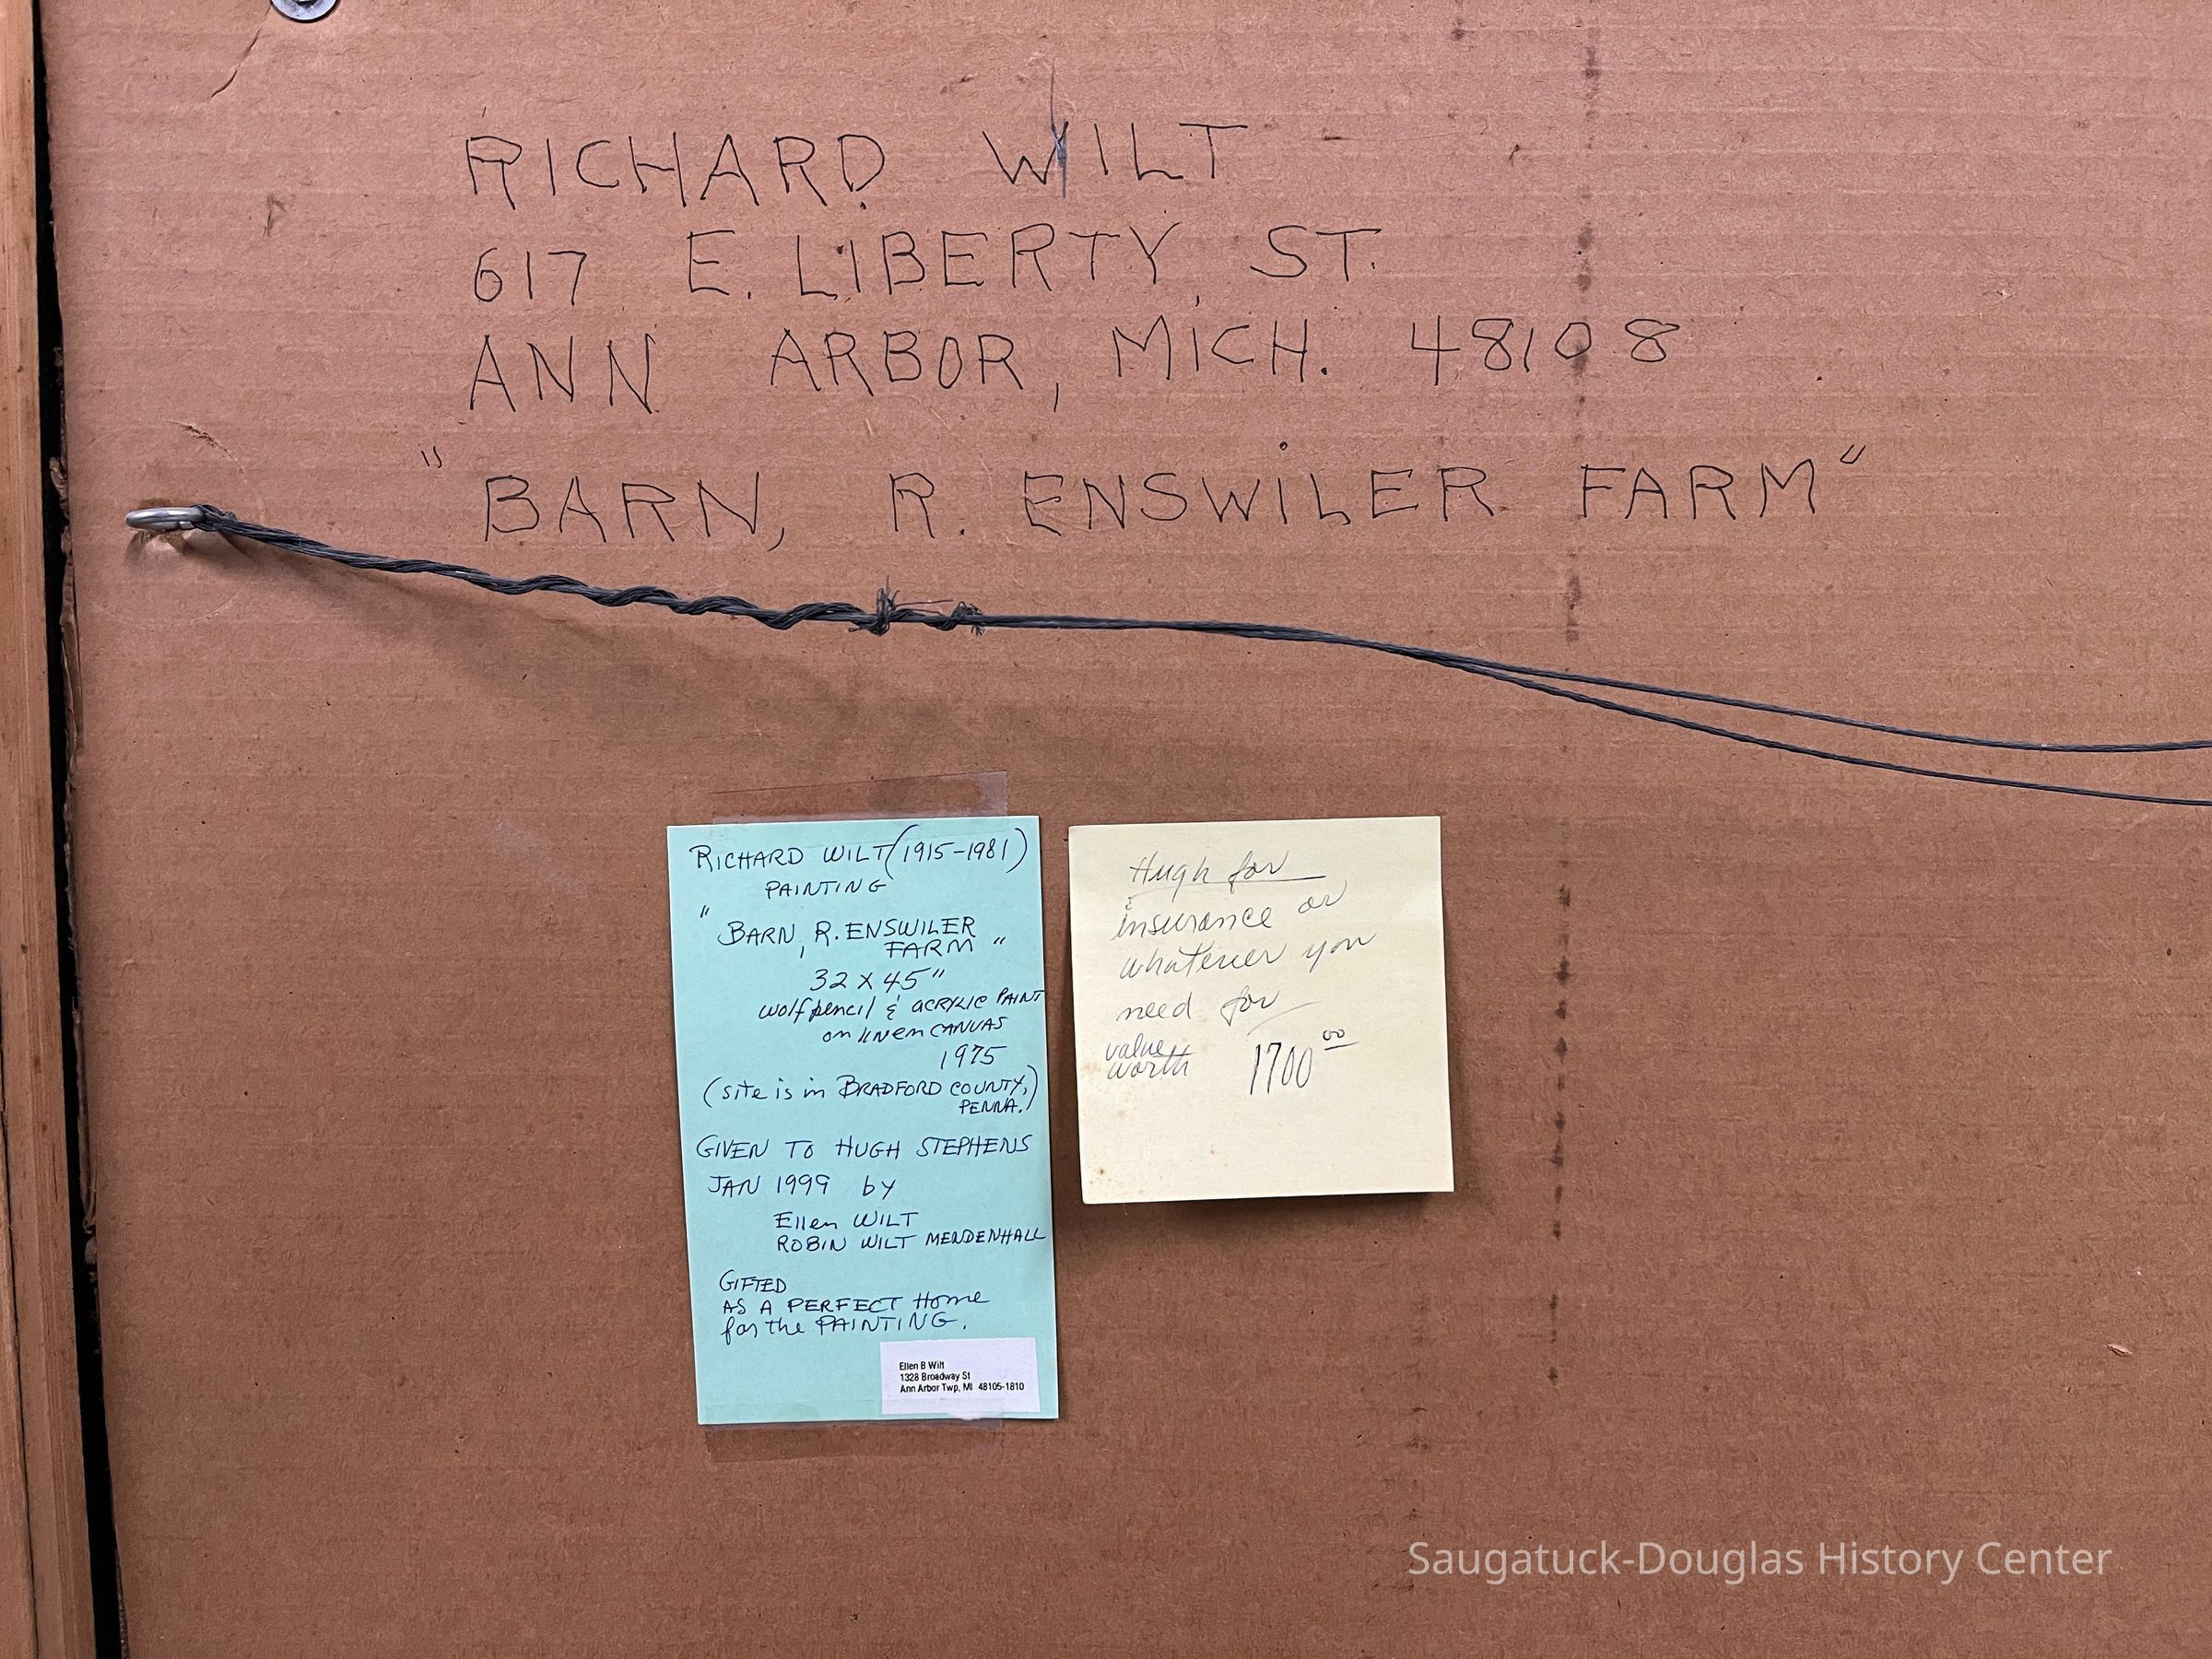 RICHARD WILT
617 E. LIBERTY ST.
ANN ARBOR, MICH. 48108
"BARN, R. ENSWILER FARM"
RICHARD WILT (1915-1981)
PAINTING
"BARN, R. ENSWILER
FARM"
32 X 45"
wolfpencil & ACRYLIC PAINT
on linen CANVAS
1975
(site is in BRADFORD COUNTY,
PENNA.)
GIVEN TO HUGH STEPHENS
JAN 1999 by
Ellen WILT
ROBIN WILT MENDENHALL
GIFTED
AS A PERFECT Home
for the PAINTING.
Ellen B Wilt
1328 Broadway St
Ann Arbor Twp, MI 48105-1810
Hugh for
insurance or
whatever you
need for
value
worth 1700.00
Saugatuck-Douglas History Center